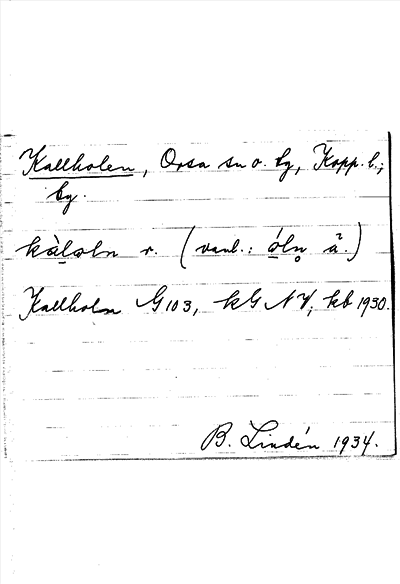 Kallholen, Orsa sn o. by, Kopp. l.;
by.
kàlɷln r. (vanl.: óln̥ ä̀.)
Kallholn G 103, kG NV, kb 1930.
B. Lindén 1934.